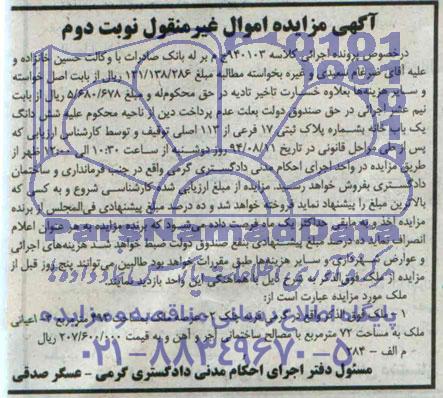 آگهی مزایده اموال غیرمنقول نوبت دوم
درخصوص پرونده اجرائی کلاسه ۹۴۰۱۰۳ج م بر له بانک صادرات با وکالت حسین خانزاده و
علیه آقای ضرغام سعیدی و غیره بخواسته مطالبه مبلغ ۱۲۱/۱۳۸/۲۸۶ ریال از بابت اصل خواسته
و سایر هزینه‌ها بعلاوه خسارت تاخیر تادیه در حق محکوم‌له و مبلغ ۵/۶۸۰/۶۷۸ ریال از بابت
نیم عشر اجرائی در حق صندوق دولت بعلت عدم پرداخت دین از ناحیه محکوم علیه شش دانگ
یک باب خانه بشماره پلاک ثبتی ۱۷ فرعی از ۱۱۳ اصلی توقیف و توسط کارشناس ارزیابی که
پس از طی مراحل قانونی در تاریخ ۹۴/۰۸/۱۱ روز دوشنبه از ساعت ۱۰:۳۰ الی ۱۲ ظهر از
طریق مزایده در واحد اجرای احکام مدنی دادگستری گرمی واقع در جنب فرمانداری و ساختمان
دادگستری بفروش خواهد رسید. مزایده از مبلغ ارزیابی شده کارشناسی شروع و به کسی که
بالاترین مبلغ را پیشنهاد نماید فروخته خواهد شد و ده درصد مبلغ پیشنهادی فی‌المجلس از برنده
مزایده اخذ و به مابقی حداکثر یک ماه فرصت داده می‌شود که برنده مزایده به هر عنوان اعلام
انصراف نماید ده درصد مبلغ پیشنهادی بنفع صندوق دولت ضبط خواهد شد هزینه‌های اجرائی
و عوارض شهرداری و سایر هزینه‌ها طبق مقررات خواهد بود طالبین می‌توانند پنج روز قبل از
مزایده از ملک فوق‌الذکر به شرح ذیل با هماهنگی این واحد بازدید نمایند.
ملک مورد مزایده عبارت است از:
۱- ملک فوق‌الذکر واقع در گرمی اعیانی
ملک به مساحت ۷۲ مترمربع با مصالح ساختمانی آجر و آهن و به قیمت ۲۰۷/۶۰۰/۰۰۰ ریال
م الف - ۲۸۴
مسئول دفتر اجرای احکام مدنی دادگستری گرمی - عسگر صدقی
ParsNamadData
۰۲۱-۸۸۳۴۹۶۷۰-۵